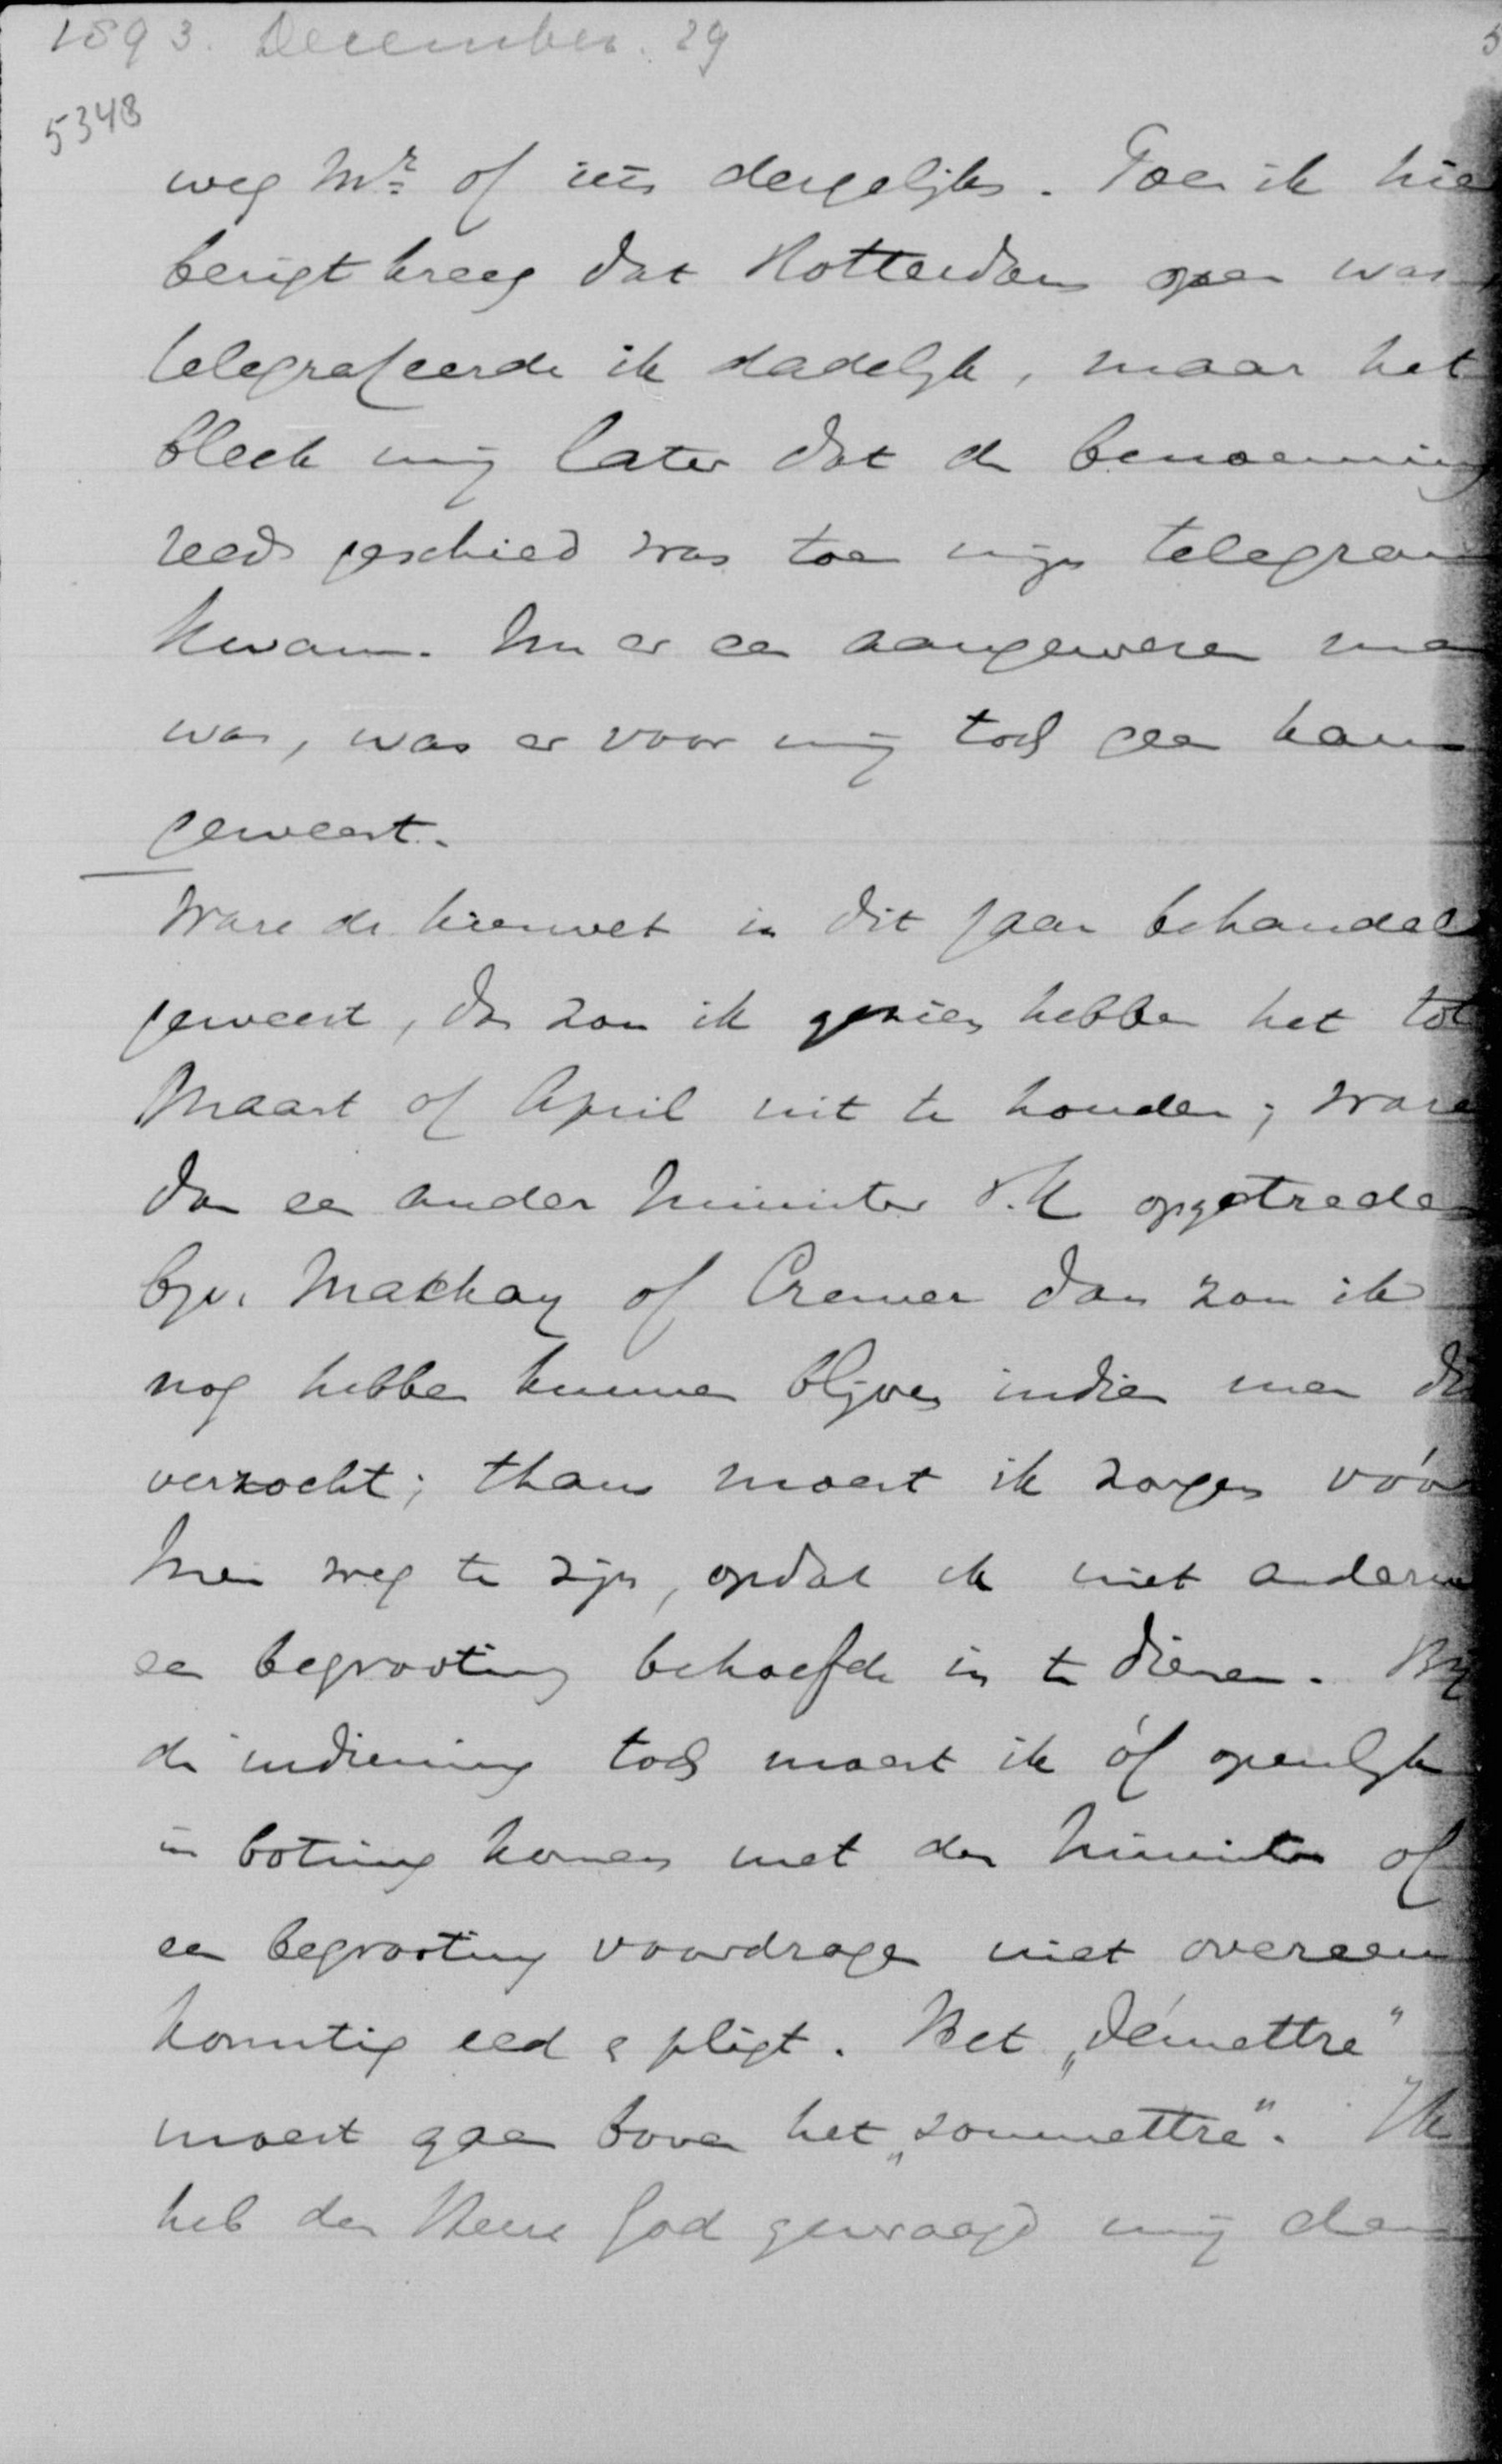 1893. December. 29
5
5348
weg Mr. of iets dergelijks. Toen ik hie
berigt kreeg dat Rotterdam open was
telegrafeerde ik dadelijk, maar het
bleek mij later dat de benoeming
reeds geschied was toen mijn telegram
kwam. Nu er een aangewezen man
was, was er voor mij toch geen kans
geweest.
Ware de kieswet in dit jaar behandeld
geweest, dan zou ik gezien hebben het tot
Maart of April uit te houden; ware
dan een ander Minister v. K opgetreden
bijv. Mackay of Cremer dan zou ik
nog hebben kunnen blijven indien men dit
verzocht; thans moest ik zorgen vóór
Mei weg te zijn, opdat ik niet anderm
een begrooting behoefde in te dienen. Bij
de indiening toch moest ik óf openlijk
in botsing komen met den Minister of
een begrooting voordragen niet overeen
komstig eed & pligt. Het „démettre"
moest gaan boven het „soumettre". Ik
heb den Heere God gevraagd mij den